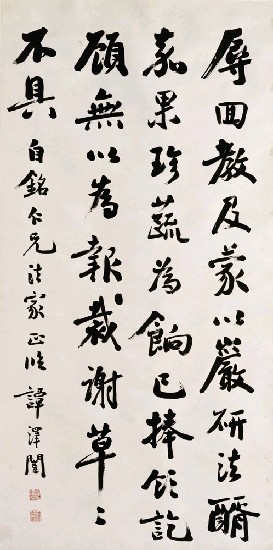 辱回教及蒙以岩研法醑
嘉果珍蔬為餉已捧領訖
顧無以為報裁謝草〻
不具 自銘仁兄法家正臨 譚澤闓